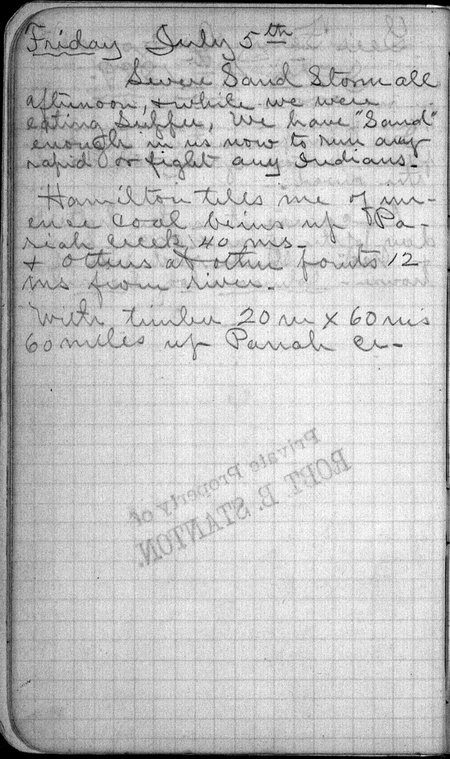 Friday July 5th
Severe Sand Storm all
afternoon, & while we were
eating Supper, We have "Sand"
enough in us now to run any
rapid or fight any Indians-
Hamilton tells me of im-
ense Coal beins up Pa-
riah Creek 40 ms-
& Others at other points 12
ms from river.
With timber 20 m x 60 ms
60 miles up Pariah Cr-
Private Property of
ROBT. B. STANTON.